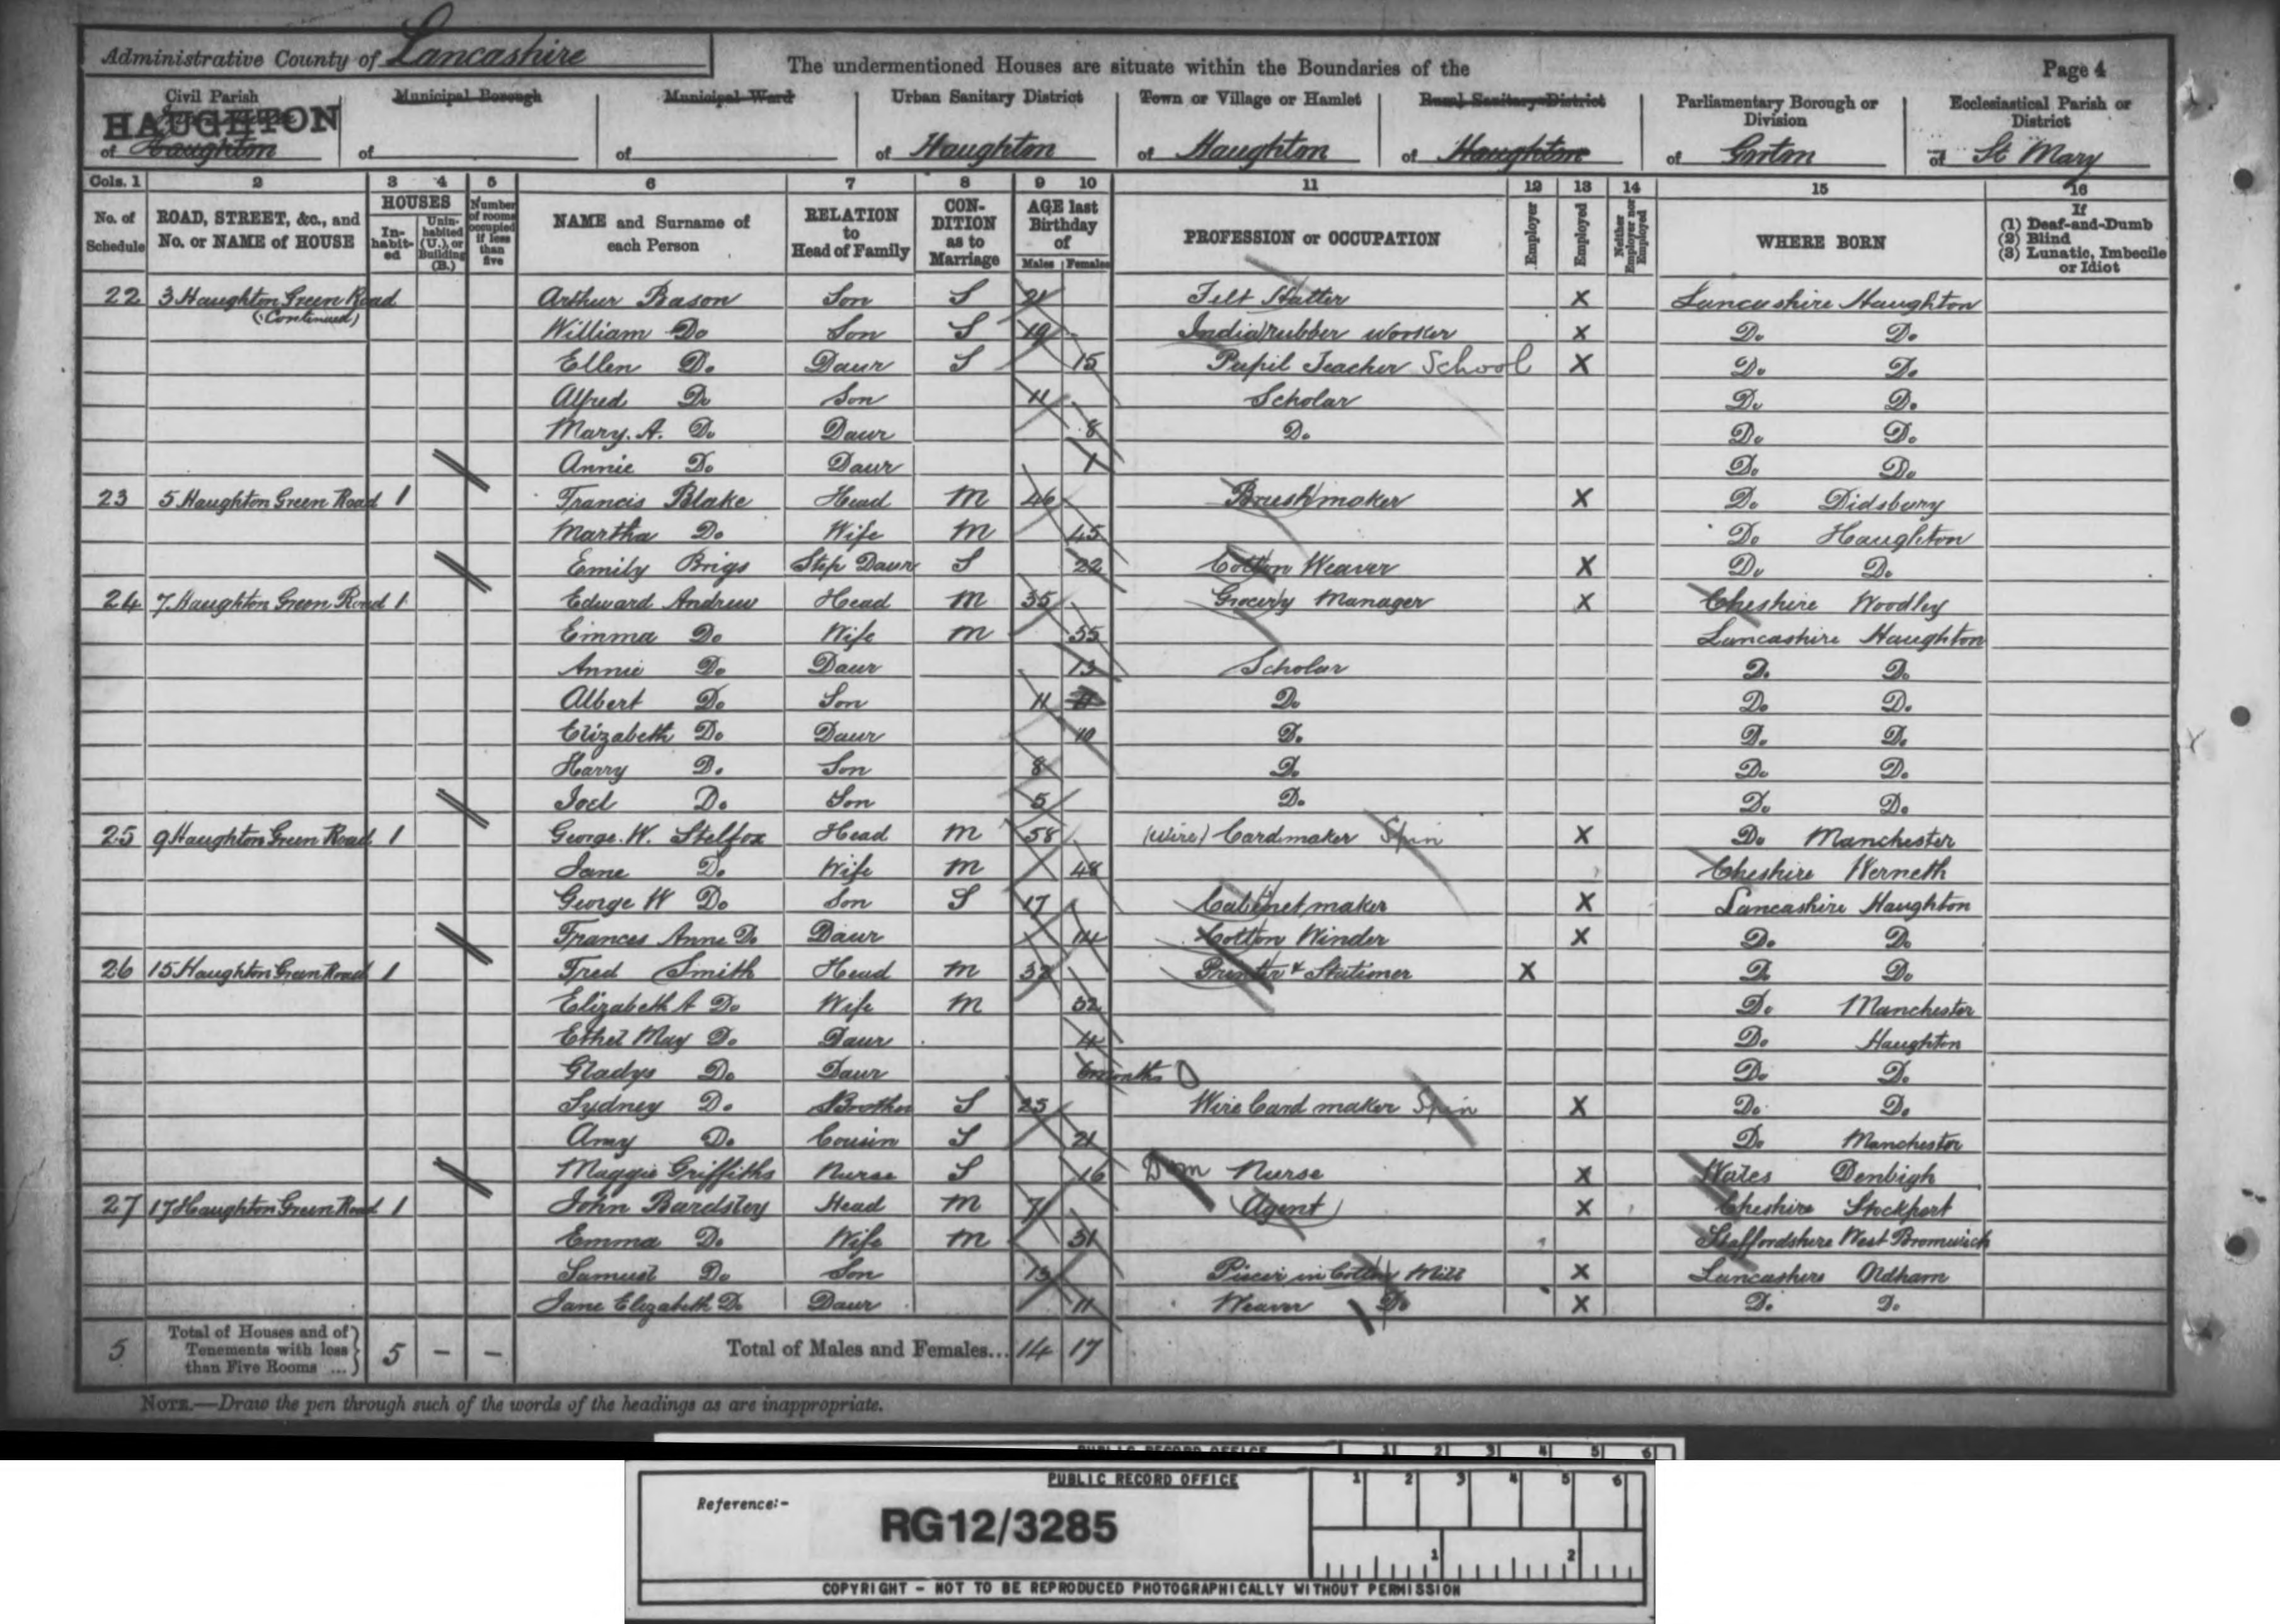 Administrative County of Lancashire
The undermentioned Houses are situate within the Boundaries of the
Page 4
Civil Parish HAUGHTON of Haughton
Municipal Borough of
Municipal Ward of
Urban Sanitary District of Haughton
Town or Village or Hamlet of Haughton
Rural Sanitary District of Haughton
Parliamentary Borough or Division of Gorton
Ecclesiastical Parish or District of St Mary
Cols. 1 2 3 4 5 6 7 8 9 10 11 12 13 14 15 16
No. of Schedule
ROAD, STREET, &c., and No. or NAME of HOUSE
HOUSES
In-habit-ed
Unin-habited (U.), or Building (B.)
Number of rooms occupied if less than five
NAME and Surname of each Person
RELATION to Head of Family
CON-DITION as to Marriage
AGE last Birthday of
Males Females
PROFESSION or OCCUPATION
Employer
Employed
Neither Employer nor Employed
WHERE BORN
If (1) Deaf-and-Dumb (2) Blind (3) Lunatic, Imbecile or Idiot
22 3 Haughton Green Road Arthur Bason Son S 21 Felt Hatter X Lancashire Haughton
(Continued) William Do Son S 19 Indiarubber worker X Do Do
Ellen Do Daur S 15 Pupil Teacher School X Do Do
Alfred Do Son 11 Scholar Do Do
Mary. A. Do Daur 8 Do Do Do
Annie Do Daur 1 Do Do
23 5 Haughton Green Road 1 Francis Blake Head M 46 Brushmaker X Do Didsbury
Martha Do Wife M 45 Do Haughton
Emily Brigs Step Daur S 22 Cotton Weaver X Do Do
24 7 Haughton Green Road 1 Edward Andrew Head M 35 Grocery Manager X Cheshire Woodley
Emma Do Wife M 35 Lancashire Haughton
Annie Do Daur 13 Scholar Do Do
Albert Do Son 11 Do Do Do
Elizabeth Do Daur 10 Do Do Do
Harry Do Son 8 Do Do Do
Joel Do Son 5 Do Do Do
25 9 Haughton Green Road 1 George. W. Stelfox Head M 58 (Wire) Cardmaker Spin X Do Manchester
Jane Do Wife M 48 Cheshire Werneth
George W Do Son S 17 Cabinet maker X Lancashire Haughton
Frances Anne Do Daur 14 Cotton Winder X Do Do
26 15 Haughton Green Road 1 Fred Smith Head M 32 Printer & Stationer X Do Do
Elizabeth A Do Wife M 32 Do Manchester
Ethel May Do Daur 4 Do Haughton
Gladys Do Daur 6 months Do Do
Sydney Do Brother S 25 Wire Card maker Spin X Do Do
Amy Do Cousin S 21 Do Manchester
Maggie Griffiths Nurse S 16 Dom Nurse X Wales Denbigh
27 17 Haughton Green Road 1 John Bardsley Head M 71 Agent X Cheshire Stockport
Emma Do Wife M 51 Staffordshire West Bromwich
Samuel Do Son 13 Piecer in Cotton Mill X Lancashire Oldham
Jane Elizabeth Do Daur 11 Weaver Do X Do Do
5 Total of Houses and of Tenements with less than Five Rooms ... 5 – – Total of Males and Females... 14 17
NOTE.—Draw the pen through such of the words of the headings as are inappropriate.
PUBLIC RECORD OFFICE 1 2 3 4 5 6
PUBLIC RECORD OFFICE 1 2 3 4 5 6
Reference:-
RG12/3285
1 2
COPYRIGHT - NOT TO BE REPRODUCED PHOTOGRAPHICALLY WITHOUT PERMISSION